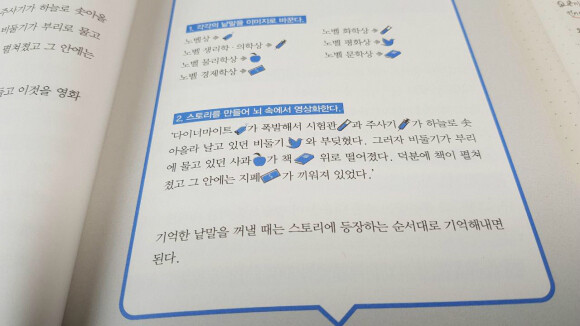 주사기가 하늘로 솟아올
비둘기가 부리로 물고
펼쳐졌고 그 안에는
이것을 영화
1. 각각의 낱말을 이미지로 바꾼다.
노벨상→
노벨 생리학·의학상→
노벨 물리학상→
노벨 경제학상→
노벨 화학상→
노벨 평화상→
노벨 문학상→
2. 스토리를 만들어 뇌 속에서 영상화한다.
'다이너마이트가 폭발해서 시험관과 주사기가 하늘로 솟
아올라 날고 있던 비둘기와 부딪혔다. 그러자 비둘기가 부리
에 물고 있던 사과가 책 위로 떨어졌다. 덕분에 책이 펼쳐
졌고 그 안에는 지폐가 끼워져 있었다.'
기억한 낱말을 꺼낼 때는 스토리에 등장하는 순서대로 기억해내면
된다.